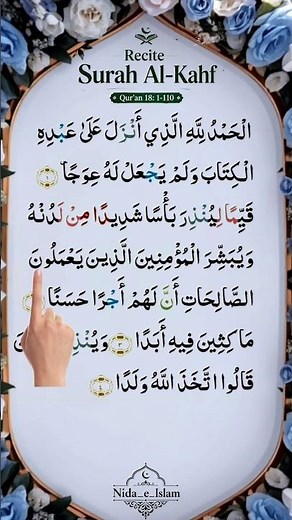 Recite
Surah Al-Kahf
Qur'an 18: 1-110
الْحَمْدُ لِلَّهِ الَّذِي أَنْزَلَ عَلَىٰ عَبْدِهِ
الْكِتَابَ وَلَمْ يَجْعَلْ لَهُ عِوَجًا ۝١
قَيِّمًا لِيُنْذِرَ بَأْسًا شَدِيدًا مِنْ لَدُنْهُ
وَيُبَشِّرَ الْمُؤْمِنِينَ الَّذِينَ يَعْمَلُونَ
الصَّالِحَاتِ أَنَّ لَهُمْ أَجْرًا حَسَنًا
مَاكِثِينَ فِيهِ أَبَدًا ۝٣
قَالُوا اتَّخَذَ اللَّهُ وَلَدًا ۝٤
Nida_e_Islam